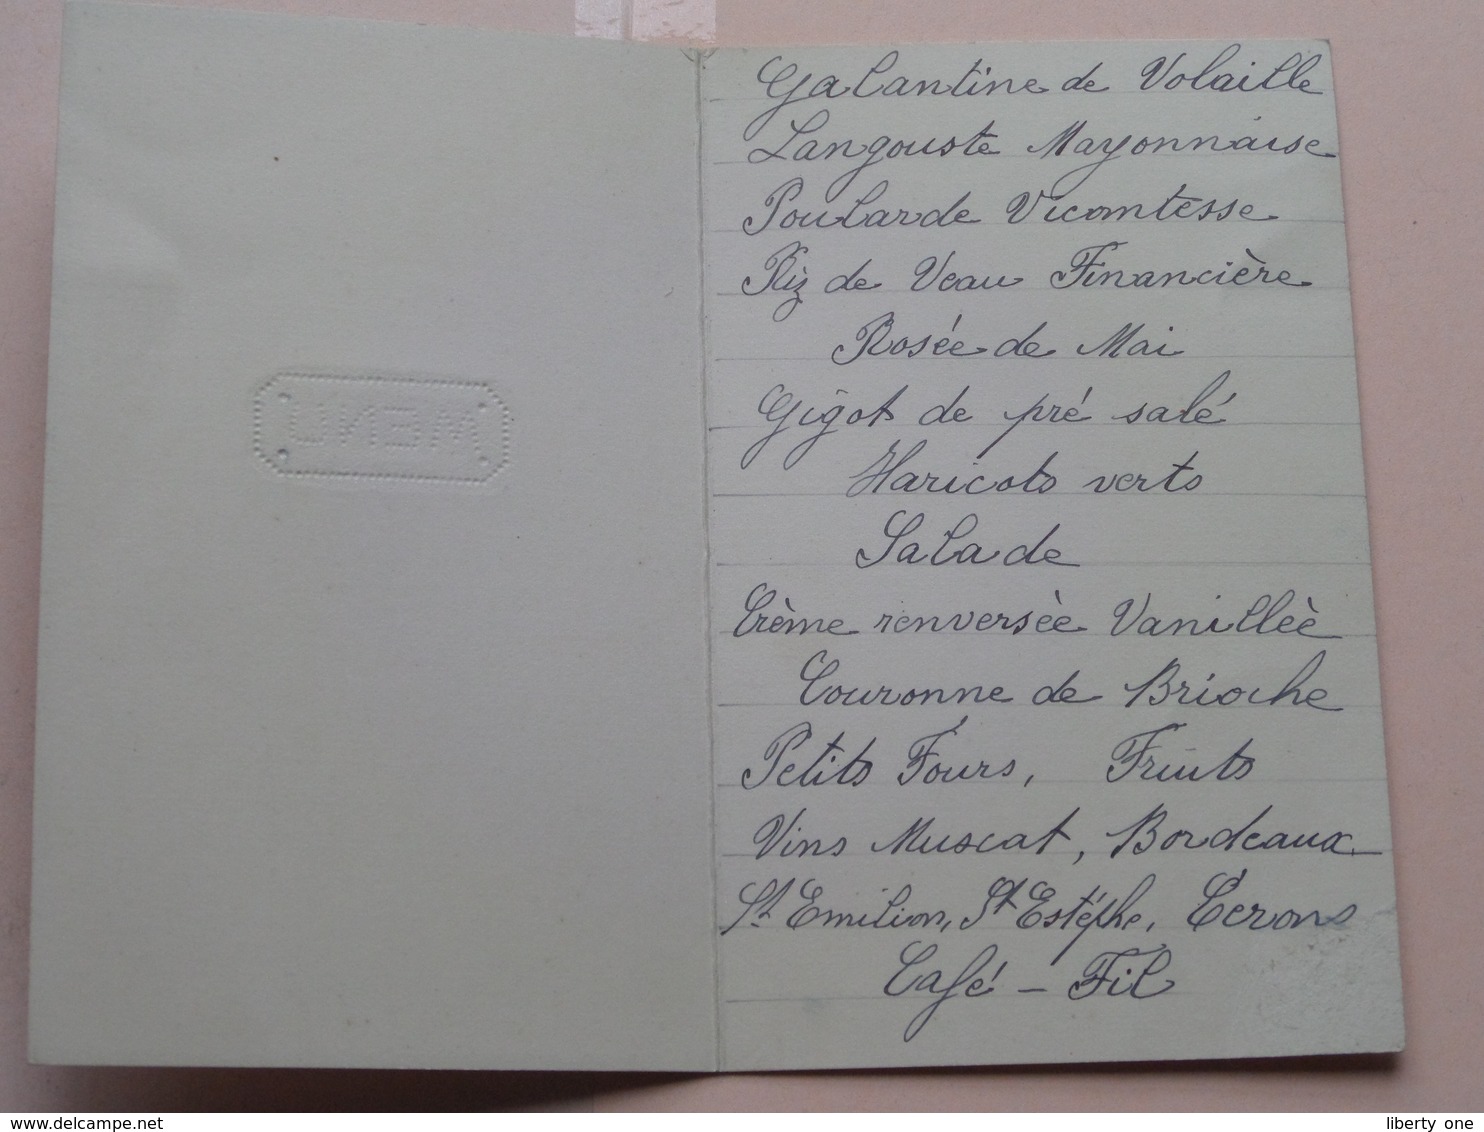 MENU
Galantine de Volaille
Langouste Mayonnaise
Poularde Vicomtesse
Riz de Veau Financière
Rosée de Mai
Gigot de pré salé
Haricots verts
Salade
Crème renversèe Vanillèe
Couronne de Brioche
Petits Fours, Fruits
Vins Muscat, Bordeaux
St. Emilion, St Estéphe, Cérons
Café - Fil
www.delcampe.net
liberty one